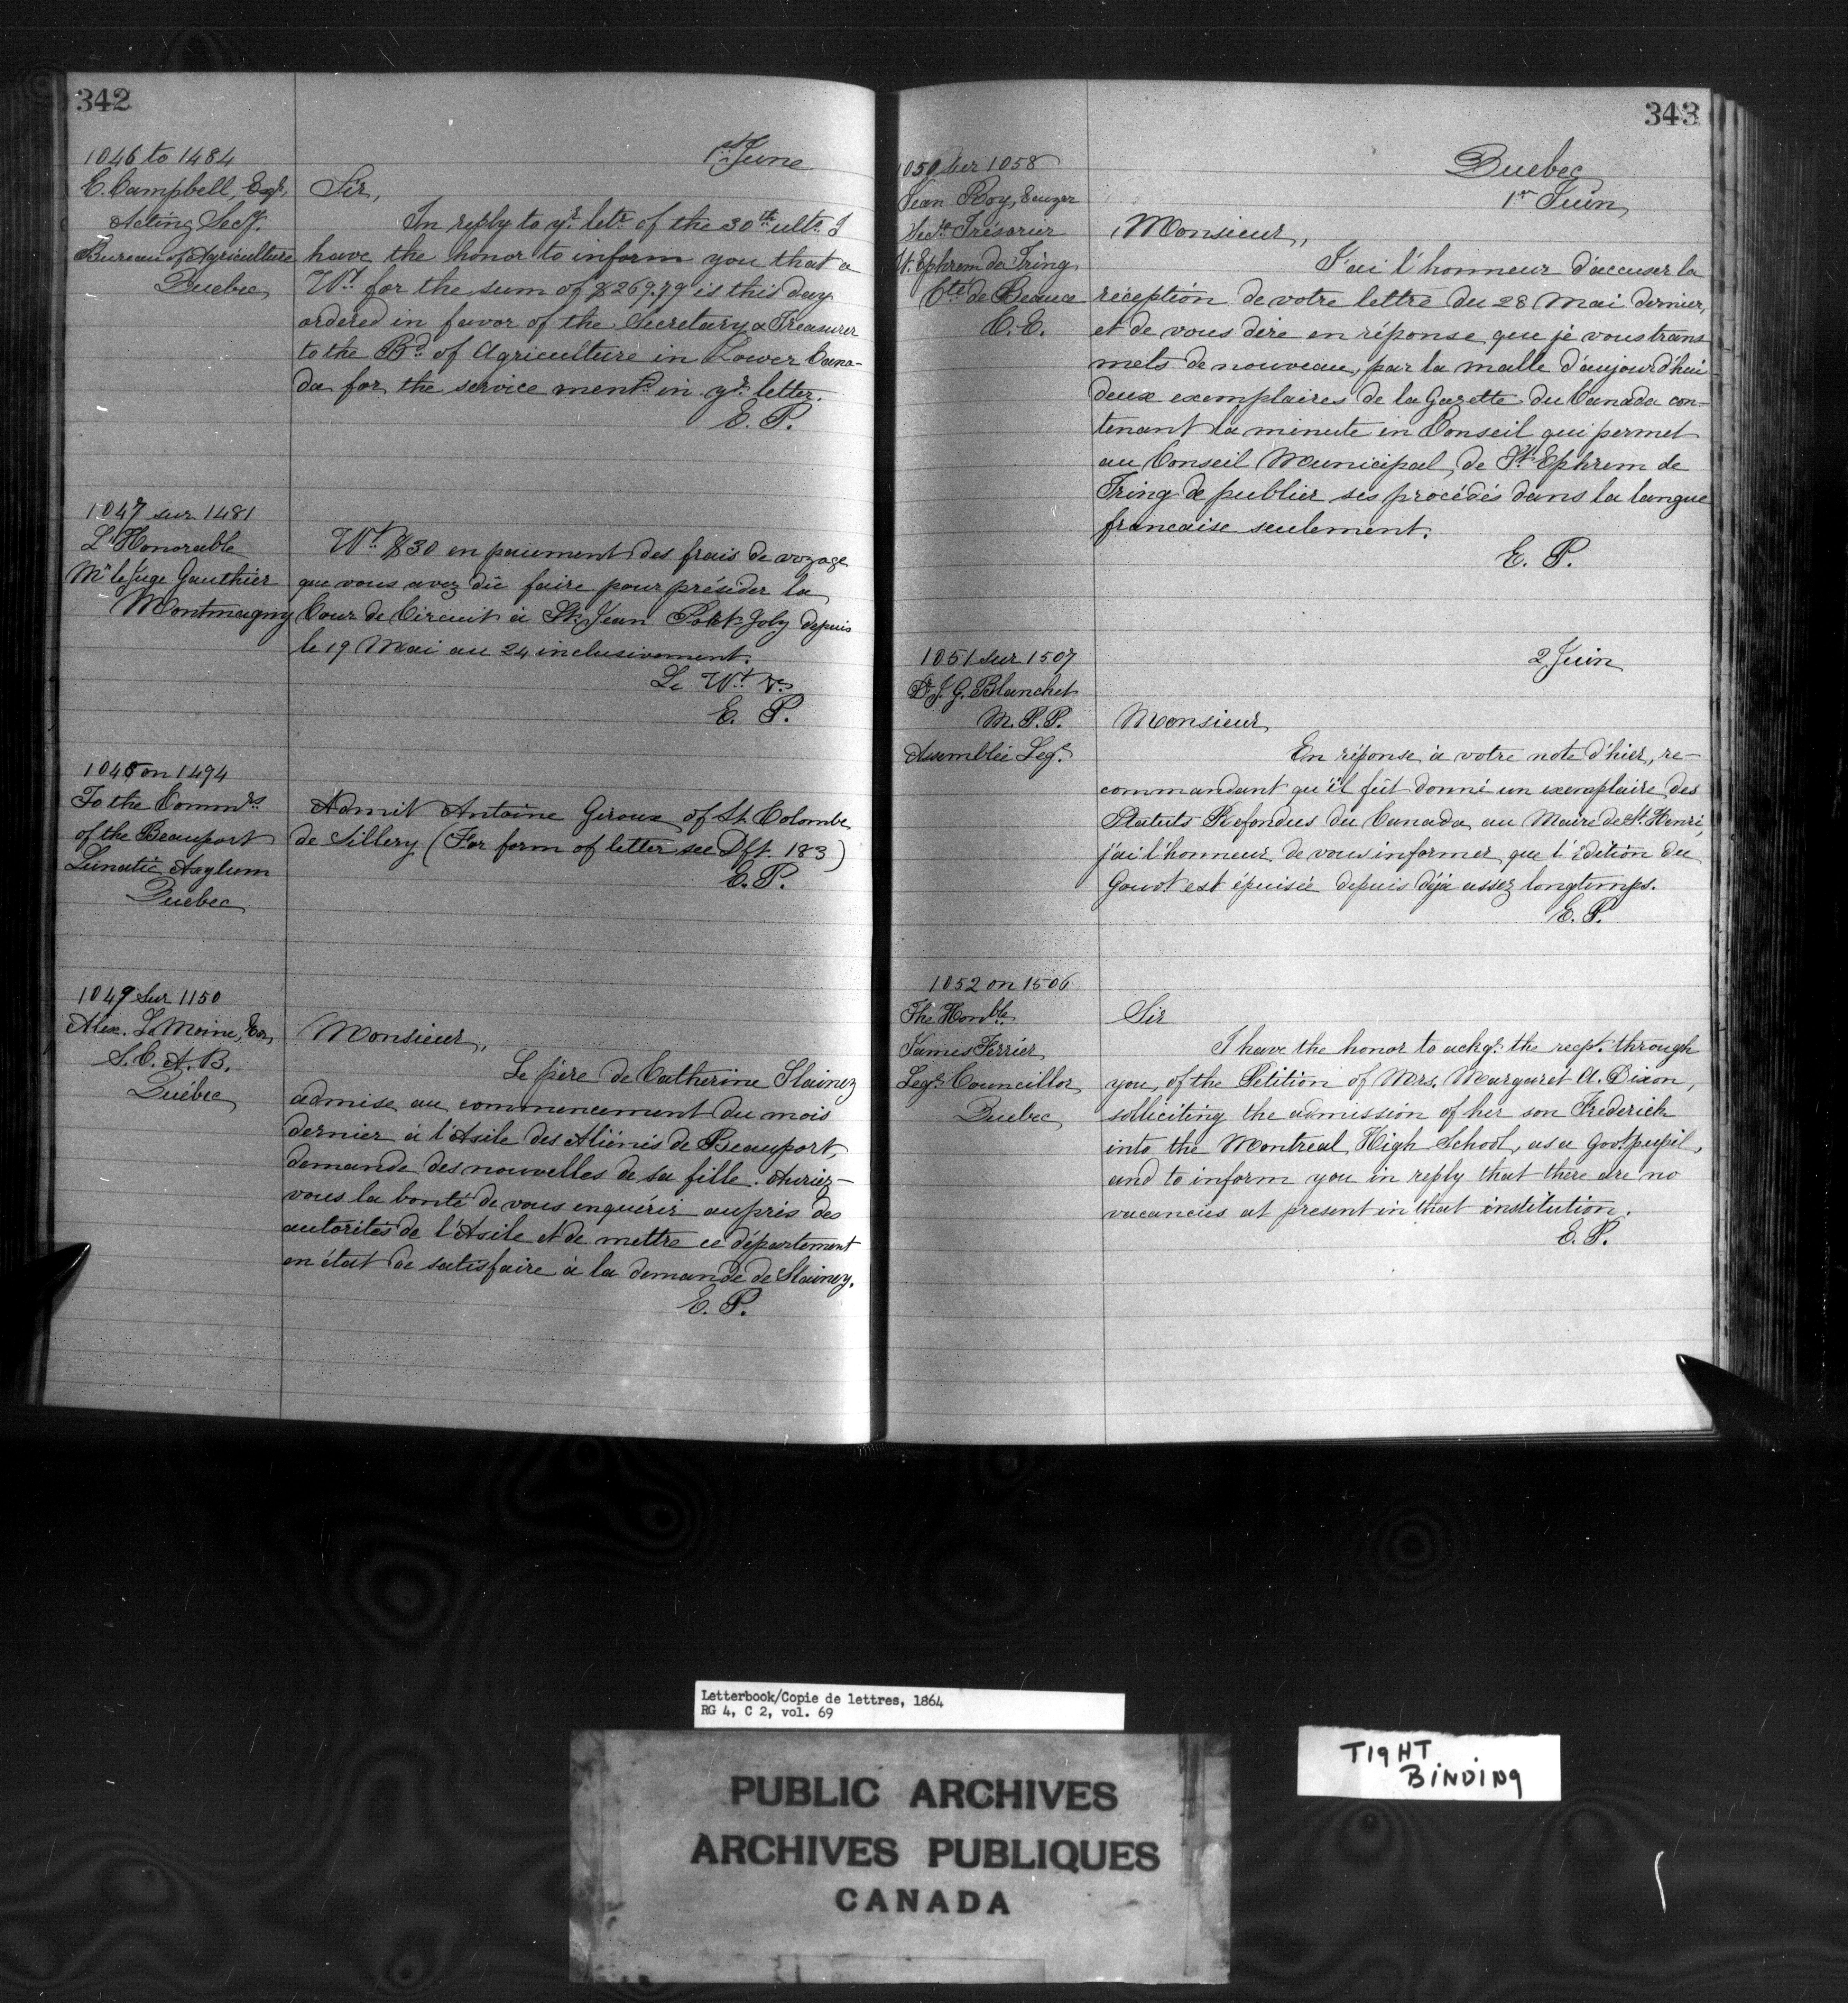 342
1st June
1046 to 1484
E. Campbell, Esqr,
Acting Secy.
Bureau of Agriculture
Quebec
Sir,
In reply to yr. letr. of the 30th ulto. I
have the honor to inform you that a
Wt. for the sum of $269.79 is this day
ordered in favor of the Secretary & Treasurer
to the Bd. of Agriculture in Lower Cana-
da for the service mentd. in yr. letter.
E. P.
1047 sur 1481
L'Honorable
Mr le Juge Gauthier
Montmagny
Wt. $30 en paiement des frais de voyage
que vous avez dû faire pour présider la
Cour de Circuit à St. Jean Port Joly depuis
le 19 Mai au 24 inclusivement.
Le Wt.
E. P.
1048 on 1494
To the Commrs
of the Beauport
Lunatic Asylum
Quebec
Admit Antoine Giroux of St. Colombe
de Sillery (For form of letter see Dft. 183)
E. P.
1049 sur 1150
Alex. LeMoine, Ecr,
S. C. A. B.
Québec
Monsieur,
Le père de Catherine Slainey
admise au commencement du mois
dernier à l'Asile des Aliénés de Beauport,
demande des nouvelles de sa fille. Auriez-
vous la bonté de vous enquérir auprès des
autorités de l'Asile et de mettre ce département
en état de satisfaire à la demande de Slainey.
E. P.
343
Quebec
1er Juin
1050 sur 1058
Jean Roy, Ecuyer
Secrt. Trésorier
St. Ephrem de Tring
Cté de Beauce
C. E.
Monsieur,
J'ai l'honneur d'accuser la
réception de votre lettre du 28 Mai dernier,
et de vous dire en réponse que je vous trans
mets de nouveau, par la malle d'aujourd'hui
deux exemplaires de la Gazette du Canada con-
tenant la minute in Conseil qui permet
au Conseil Municipal de St. Ephrem de
Tring de publier ses procédés dans la langue
francaise seulement.
E. P.
2 Juin
1051 sur 1507
Dr. J. G. Blanchet
M. P. P.
Assemblée Legve.
Monsieur
En réponse à votre note d'hier, re-
commandant qu'il fût donné un exemplaire des
Statuts Refondus du Canada au Maire de St. Henri,
j'ai l'honneur de vous informer que l'édition du
Gouvt est épuisée depuis déjà assez longtemps.
E. P.
1052 on 1506
The Honble.
James Ferrier
Legve. Councillor
Quebec
Sir
I have the honor to ackge. the recpt. through
you, of the Petition of Mrs. Margaret A. Dixon,
solliciting the admission of her son Frederick
into the Montreal High School, as a Govt. pupil,
and to inform you in reply that there are no
vacancies at present in that institution.
E. P.
Letterbook/Copie de lettres, 1864
RG 4, C 2, vol. 69
PUBLIC ARCHIVES
ARCHIVES PUBLIQUES
CANADA
TIGHT
BINDING